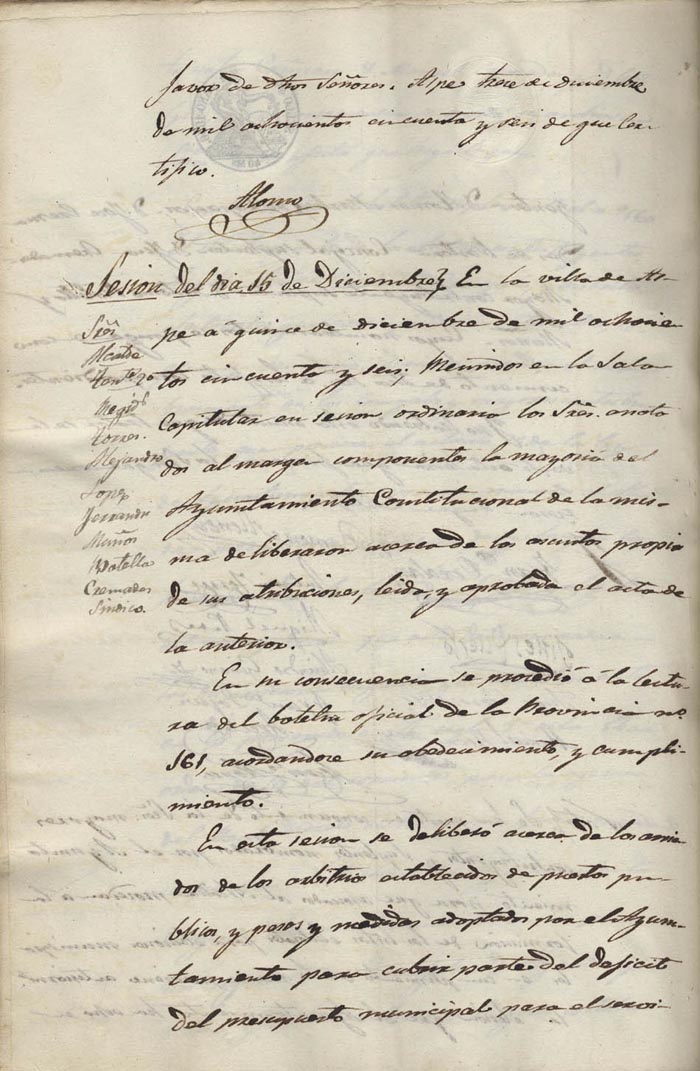 favor de dhos Señores. Aspe trece de diciembre
de mil ochocientos cincuenta y seis de que Cer-
tifico.
Alonso
Sesion del dia 15 de Diciembre En la villa de As-
pe á quince de diciembre de mil ochocien
tos cincuenta y seis; Reunidos en la Sala
Capitular en sesion ordinaria los Sres. anota
dos al margen componentes la mayoria del
Ayuntamiento Constitucional de la mis-
ma deliberaron acerca de los asuntos propios
de sus atribuciones, leida, y aprobada el acta de
la anterior.
Sres
Alcalde
Regid
Torres.
Alejandro
Lopez
Ferrandez
Muños
Botella
Cremades
Sindico.
En su consecuencia se procedió á la lectu-
ra del boletin oficial de la Provincia nº
161, acordandose su obedecimiento, y cumpli-
miento.
En esta sesion se deliberó acerca de los arrien
dos de los arbitrios establecidos de puestos pu-
blicos, y pesos y medidas adoptados por el Ayun-
tamiento para cubrir parte del deficit
del presupuesto municipal para el servi-